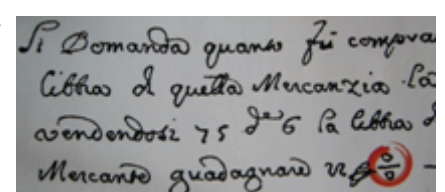 Si Domanda quanto fù compra
libbra d quella Mercanzia la
vendendosi 75 de 6 la libbra d
Mercante guadagnare